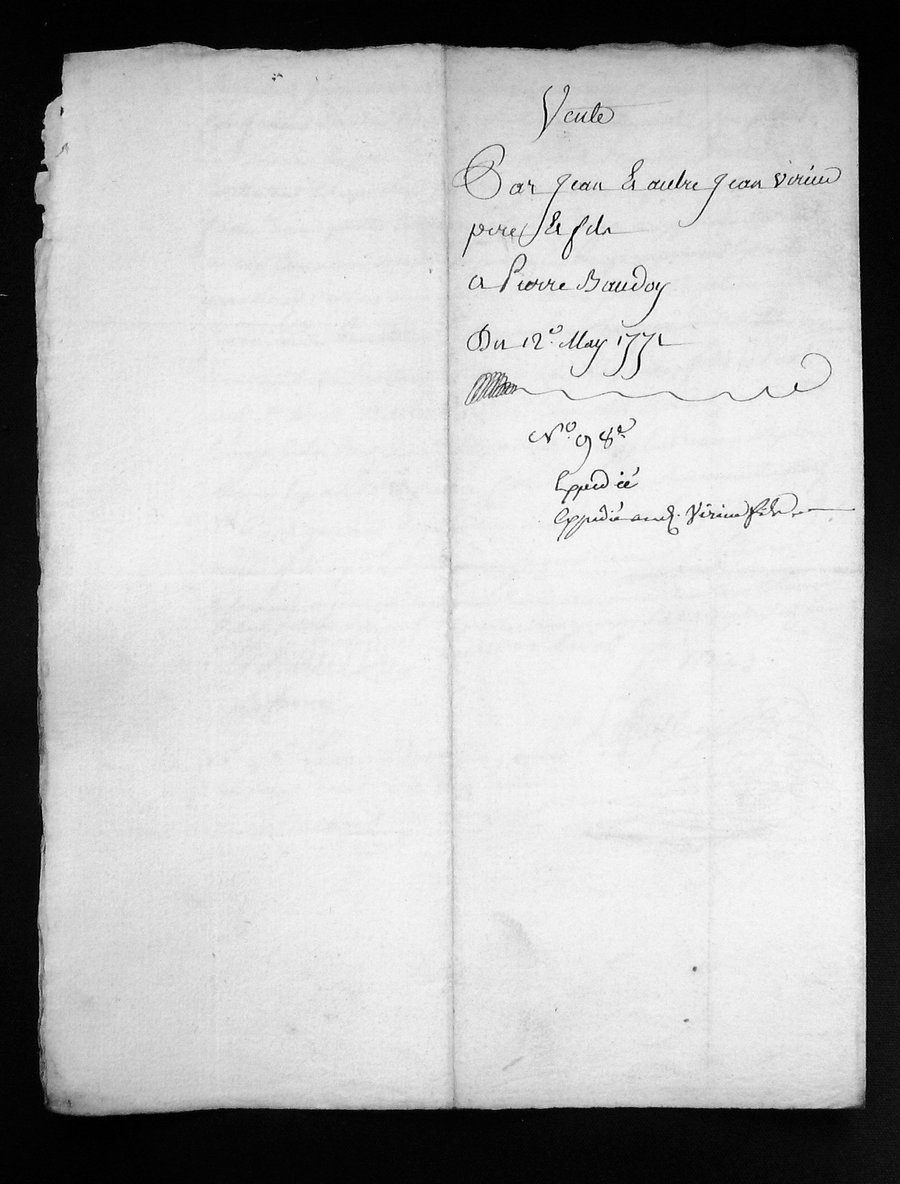 Vente
Par Jean & autre Jean Viriou
pere & fils
a Pierre Baudoy
Du 12e. May 1771
No. 98e
Expedié
Expedié aud. Viriou fils